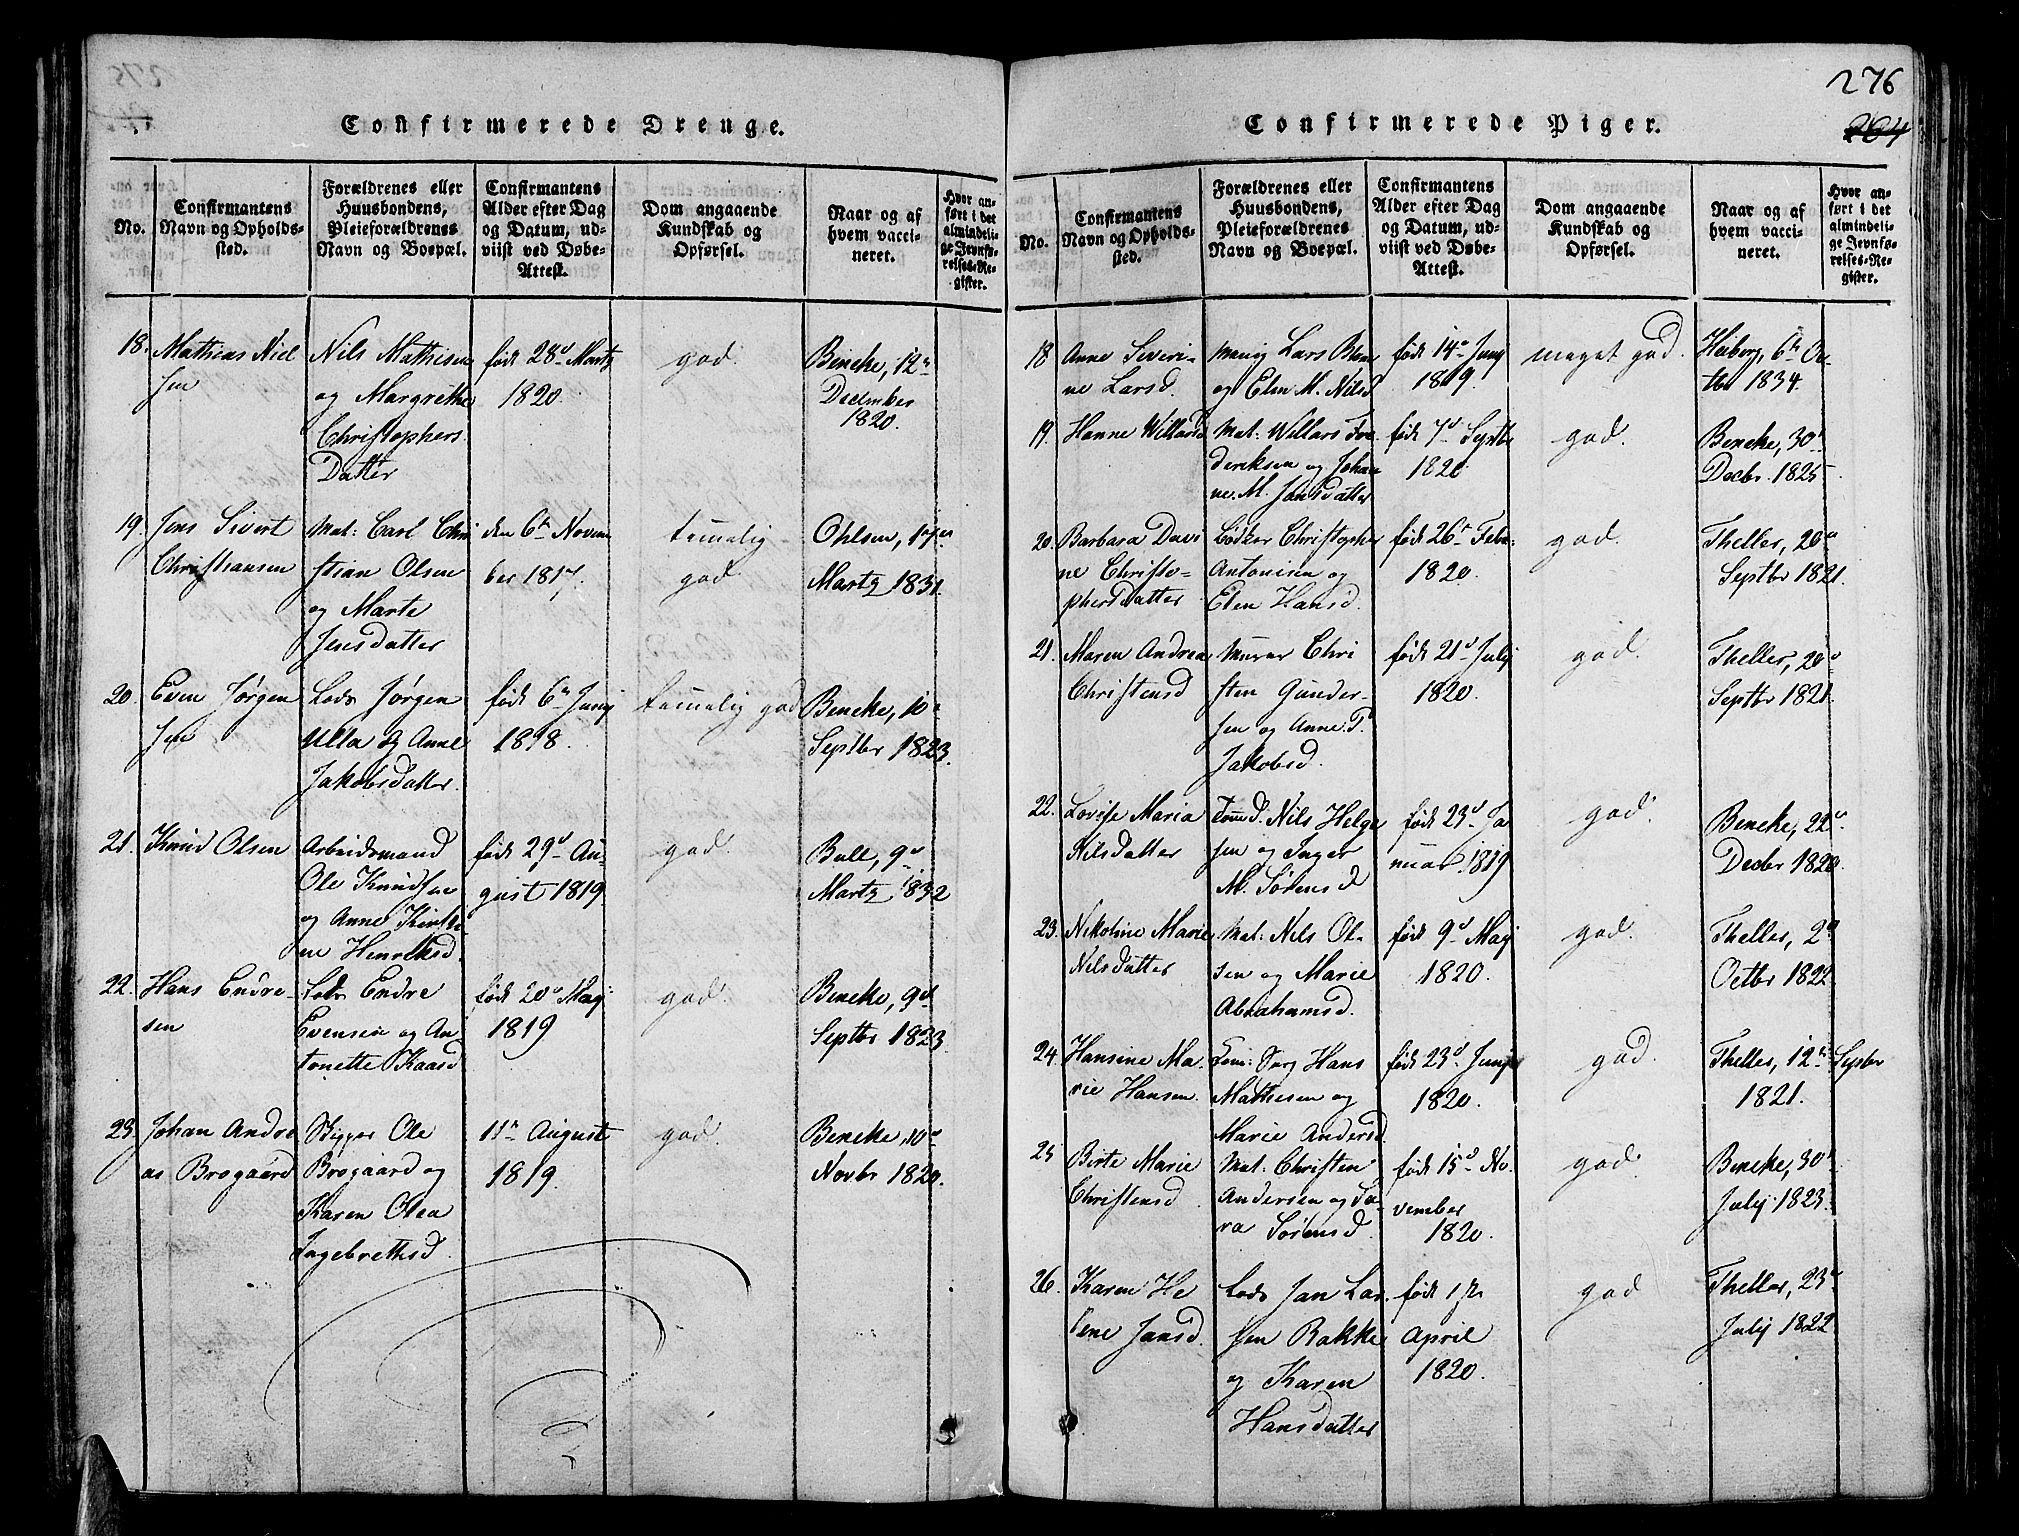 276
264
Confirmerede Drenge.
No.
Confirmantens
Navn og Opholds-
sted.
Forældrenes eller
Huusbondens,
Pleieforældrenes
Navn og Boepæl.
Confirmantens
Alder efter Dag
og Datum, ud-
viist ved Døbe-
Attest.
Dom angaaende
Kundskab og
Opførsel.
Naar og af
hvem vacci-
neret.
Hvor an-
ført i det
almindeli-
ge Jevnfø-
relses-Re-
gister.
18. Mathias Niel
sen
Nils Mathisen
og Margrethe
Christophers
Datter
født 28d Martz
1820.
god.
Beneke, 12te
December
1820.
19. Jens Sivert
Christiansen
Mat: Carl Chri
stian Olsen
og Marte
Jensdatter
den 6te Novem
ber 1817.
temmelig
god
Ohlsen, 17de
Martz 1831.
20. Even Jørgen
sen
Lods Jørgen
Ulla og Anne
Jakobsdatter.
født 6te Junij
1818.
temmelig god
Beneke, 10de
Septbr 1823.
21. Knud Olsen
Arbeidsmand
Ole Knudsen
og Anne Kirsti-
ne Henriksd.
født 29d Au-
gust 1819
god.
Bull, 9de
Martz 1832
22. Hans Endre-
sen
Lods Endre
Evensen og An
tonette Kaasd
født 20d Maj
1819
god.
Beneke, 9de
Septbr 1823.
23. Johan Andre
as Brogaard
Skipper Ole
Brogaard og
Karen Olea
Ingebrethsd.
11te August
1819.
god.
Beneke, 10de
Novbr 1820.
Confirmerede Piger.
No.
Confirmantens
Navn og Opholds-
sted.
Forældrenes eller
Huusbondens,
Pleieforældrenes
Navn og Boepæl.
Confirmantens
Alder efter Dag
og Datum, ud-
viist ved Døbe-
Attest.
Dom angaaende
Kundskab og
Opførsel.
Naar og af
hvem vacci-
neret.
Hvor an-
ført i det
almindeli-
ge Jevnfø-
relses-Re-
gister.
18 Anne Severi-
ne Larsd.
Lars
og Elen M. Nilsd
født 14de Junij
1819.
meget god.
Heiborg, 6te Oc-
tbr 1834.
19. Hanne Willarsd
Mat: Willars Fre-
deriksen og Johan
ne M. Jansdatter
født 7d Septbr
1820
god.
Beneke, 30te
Decbr. 1825
20. Barbara Davi
ne Christo-
phersdatter
Bødker Christopher
Antonisen og
Elen Hansd.
født 26de Febr:
1820.
god.
Theller, 20de
Septbr 1821.
21. Maren Andrea
Christensd
Murer Chri
sten Gunder-
sen og Anne T.
Jakobsd.
født 21d Julij
1820.
god.
Theller, 20d
Septbr 1821.
22. Lovise Maria
Nilsdatter
Tømd. Nils Helge
sen og Inger
M. Sørensd
født 23d Ja
nuar 1819
god.
Beneke, 22de
Decbr 1820.
23. Nikoline Marie
Nilsdatter
Mat: Nils Ol-
sen og Marie
Abrahamsd.
født 9d Maj
1820.
god.
Theller, 2d
Octbr 1822
24. Hansine Ma-
rie Hansen.
Hans
Mathisen og
Marie Andersd.
født 23d Junij
1820.
god.
Theller, 12te Septbr
1821.
25 Birte Marie
Christensd
Mat: Christen
Andersen og Sa-
ra Sørensd.
født 15d No-
vember
1820.
god.
Beneke, 30te
Julij 1823.
26. Karen He
lene Jansd.
Lods Jan Lar
sen Bakke
og Karen
Hansdatter
født 1ste
April
1820.
god
Theller, 23d
Julij 1822